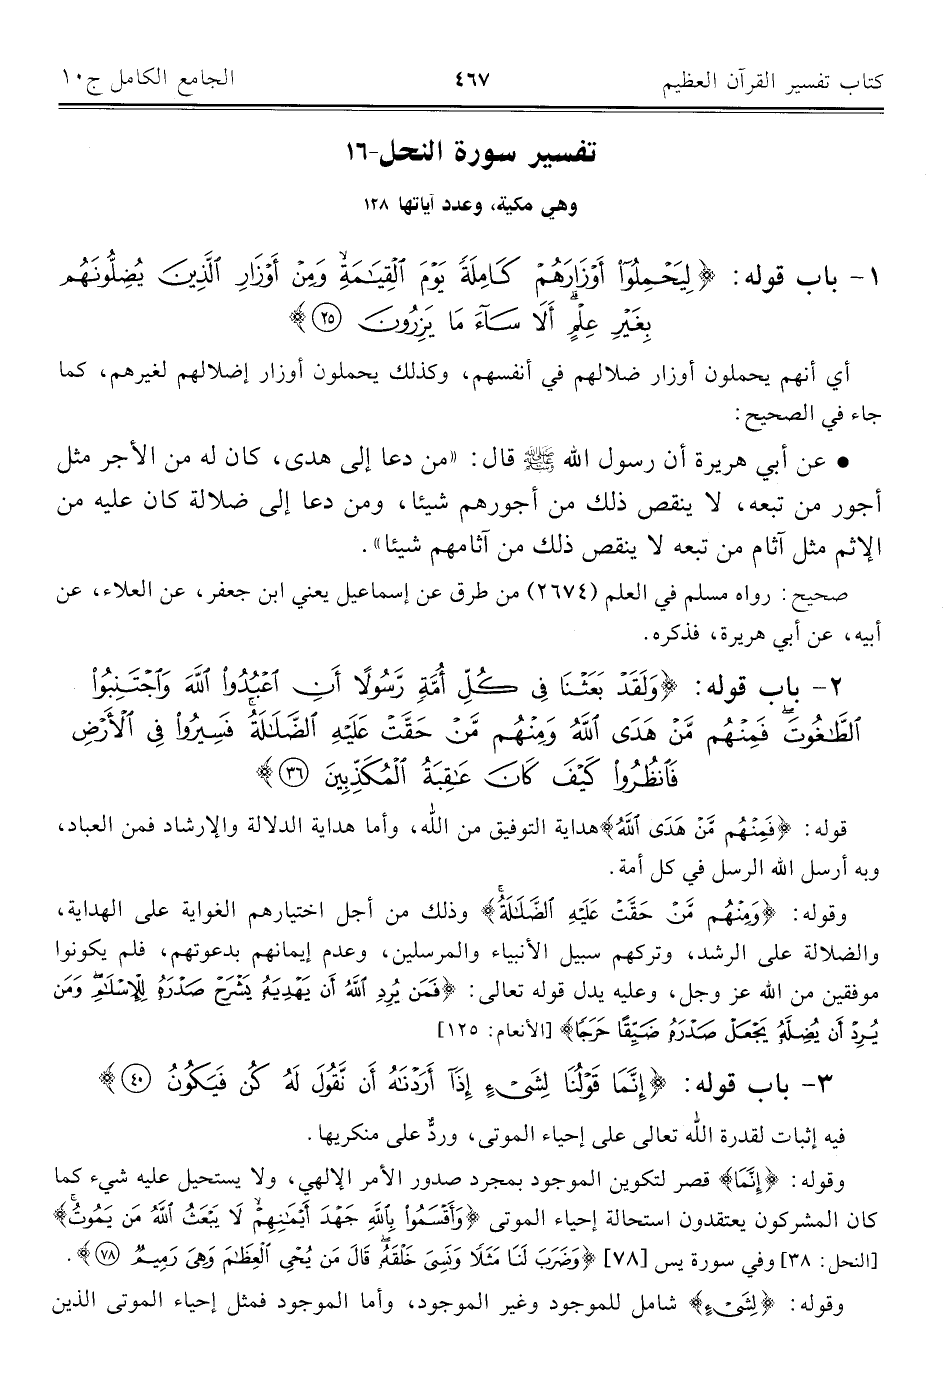 كتاب تفسير القرآن العظيم ٤٦٧ الجامع الكامل ج١٠
تفسير سورة النحل-١٦
وهي مكية، وعدد آياتها ١٢٨
١- باب قوله: ﴿لِيَحْمِلُوٓا۟ أَوْزَارَهُمْ كَامِلَةً يَوْمَ ٱلْقِيَـٰمَةِ ۙ وَمِنْ أَوْزَارِ ٱلَّذِينَ يُضِلُّونَهُم
بِغَيْرِ عِلْمٍ ۗ أَلَا سَآءَ مَا يَزِرُونَ ٢٥﴾
أي أنهم يحملون أوزار ضلالهم في أنفسهم، وكذلك يحملون أوزار إضلالهم لغيرهم، كما
جاء في الصحيح:
• عن أبي هريرة أن رسول الله ﷺ قال: «من دعا إلى هدى، كان له من الأجر مثل
أجور من تبعه، لا ينقص ذلك من أجورهم شيئا، ومن دعا إلى ضلالة كان عليه من
الإثم مثل آثام من تبعه لا ينقص ذلك من آثامهم شيئا».
صحيح: رواه مسلم في العلم (٢٦٧٤) من طرق عن إسماعيل يعني ابن جعفر، عن العلاء، عن
أبيه، عن أبي هريرة، فذكره.
٢- باب قوله: ﴿وَلَقَدْ بَعَثْنَا فِى كُلِّ أُمَّةٍ رَّسُولًا أَنِ ٱعْبُدُوا۟ ٱللَّهَ وَٱجْتَنِبُوا۟
ٱلطَّـٰغُوتَ ۖ فَمِنْهُم مَّنْ هَدَى ٱللَّهُ وَمِنْهُم مَّنْ حَقَّتْ عَلَيْهِ ٱلضَّلَـٰلَةُ ۚ فَسِيرُوا۟ فِى ٱلْأَرْضِ
فَٱنظُرُوا۟ كَيْفَ كَانَ عَـٰقِبَةُ ٱلْمُكَذِّبِينَ ٣٦﴾
قوله: ﴿فَمِنْهُم مَّنْ هَدَى ٱللَّهُ﴾ هداية التوفيق من الله، وأما هداية الدلالة والإرشاد فمن العباد،
وبه أرسل الله الرسل في كل أمة.
وقوله: ﴿وَمِنْهُم مَّنْ حَقَّتْ عَلَيْهِ ٱلضَّلَـٰلَةُ ۚ﴾ وذلك من أجل اختيارهم الغواية على الهداية،
والضلالة على الرشد، وتركهم سبيل الأنبياء والمرسلين، وعدم إيمانهم بدعوتهم، فلم يكونوا
موفقين من الله عز وجل، وعليه يدل قوله تعالى: ﴿فَمَن يُرِدِ ٱللَّهُ أَن يَهْدِيَهُۥ يَشْرَحْ صَدْرَهُۥ لِلْإِسْلَـٰمِ ۖ وَمَن
يُرِدْ أَن يُضِلَّهُۥ يَجْعَلْ صَدْرَهُۥ ضَيِّقًا حَرَجًا﴾ [الأنعام: ١٢٥]
٣- باب قوله: ﴿إِنَّمَا قَوْلُنَا لِشَىْءٍ إِذَآ أَرَدْنَـٰهُ أَن نَّقُولَ لَهُۥ كُن فَيَكُونُ ٤٠﴾
فيه إثبات لقدرة الله تعالى على إحياء الموتى، وردٌّ على منكريها.
وقوله: ﴿إِنَّمَا﴾ قصر لتكوين الموجود بمجرد صدور الأمر الإلهي، ولا يستحيل عليه شيء كما
كان المشركون يعتقدون استحالة إحياء الموتى ﴿وَأَقْسَمُوا۟ بِٱللَّهِ جَهْدَ أَيْمَـٰنِهِمْ ۙ لَا يَبْعَثُ ٱللَّهُ مَن يَمُوتُ ۚ﴾
[النحل: ٣٨] وفي سورة يس [٧٨] ﴿وَضَرَبَ لَنَا مَثَلًا وَنَسِىَ خَلْقَهُۥ ۖ قَالَ مَن يُحْىِ ٱلْعِظَـٰمَ وَهِىَ رَمِيمٌ ٧٨﴾.
وقوله: ﴿لِشَىْءٍ﴾ شامل للموجود وغير الموجود، وأما الموجود فمثل إحياء الموتى الذين